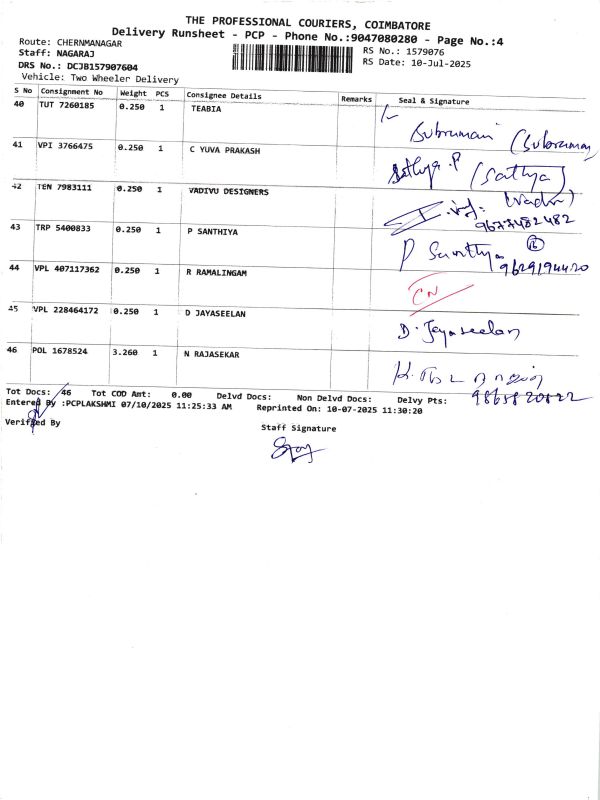 THE PROFESSIONAL COURIERS, COIMBATORE
Delivery Runsheet - PCP - Phone No.:9047080280 - Page No.:4
Route: CHERNMANAGAR
RS No.: 1579076
Staff: NAGARAJ
RS Date: 10-Jul-2025
DRS No.: DCJB157907604
Vehicle: Two Wheeler Delivery
S No Consignment No Weight PCS Consignee Details Remarks Seal & Signature
40 TUT 7260185 0.250 1 TEABIA
Subramani (Subramani
41 VPI 3766475 0.250 1 C YUVA PRAKASH Sathya.P (Sathya)
42 TEN 7983111 0.250 1 VADIVU DESIGNERS
9677482482
43 TRP 5400833 0.250 1 P SANTHIYA P Santhya
9629194420
44 VPL 407117362 0.250 1 R RAMALINGAM CN
45 VPL 228464172 0.250 1 D JAYASEELAN D. Jayaseelan
46 POL 1678524 3.260 1 N RAJASEKAR
Tot Docs: 46 Tot COD Amt: 0.00 Delvd Docs: Non Delvd Docs: Delvy Pts:
Entered By :PCPLAKSHMI 07/10/2025 11:25:33 AM Reprinted On: 10-07-2025 11:30:20
Verified By
Staff Signature